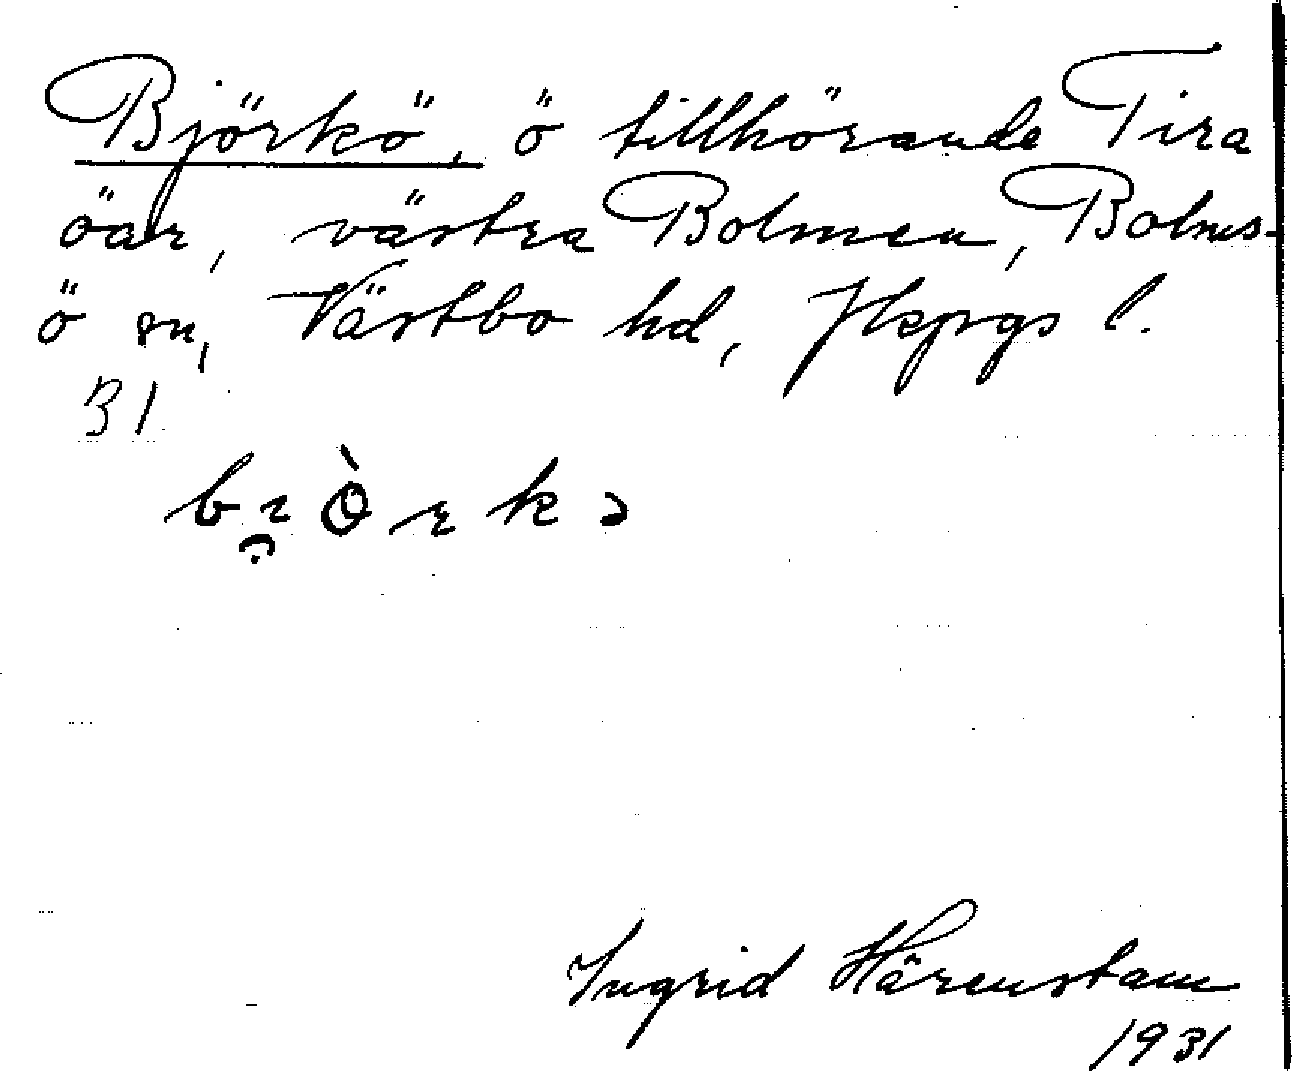 Björkö, ö tillhörande Tira
öar, västra Bolmen, Bolms-
ö sn, Västbo hd, Jkpgs l.
31
Ingrid Härenstam
1931